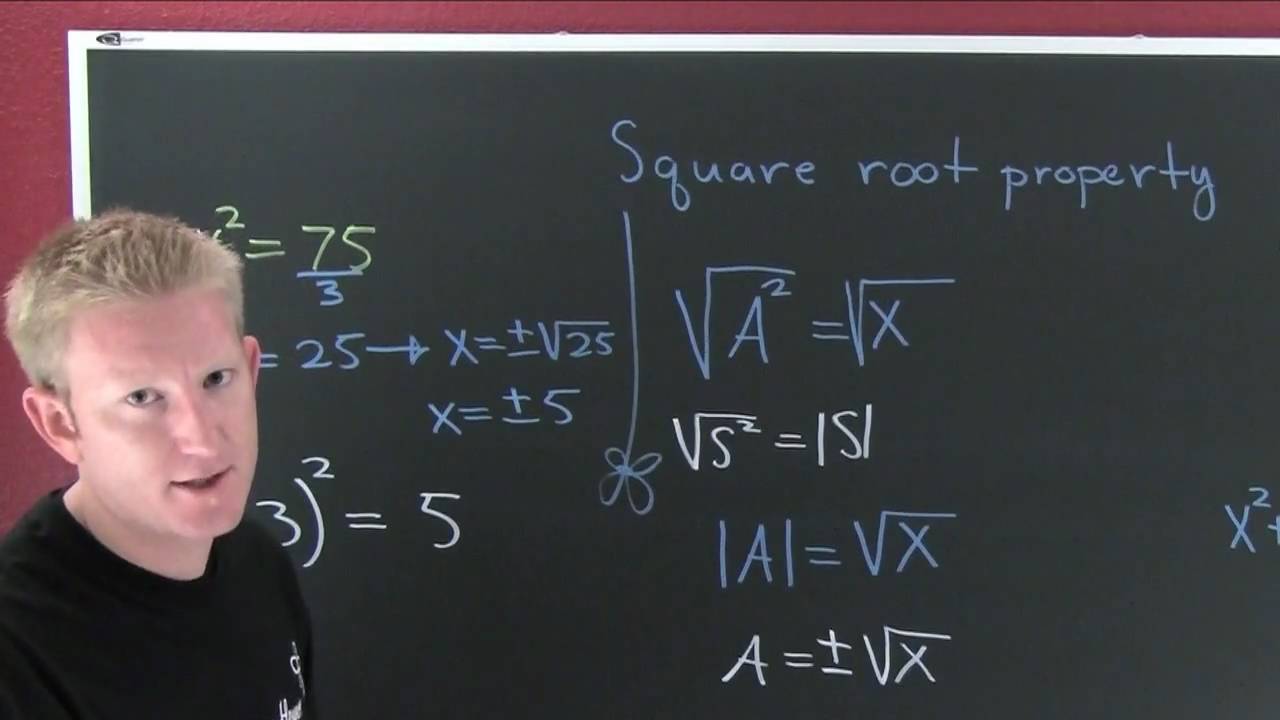 Square root property
² = 75
3
= 25 → x = ±√25
x = ±5
3)² = 5
√A² = √X
√S² = |S|
|A| = √X
A = ±√X
x² +